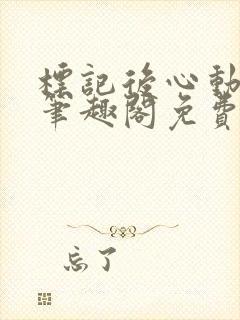 標記後心動
筆趣閣免費
忘了